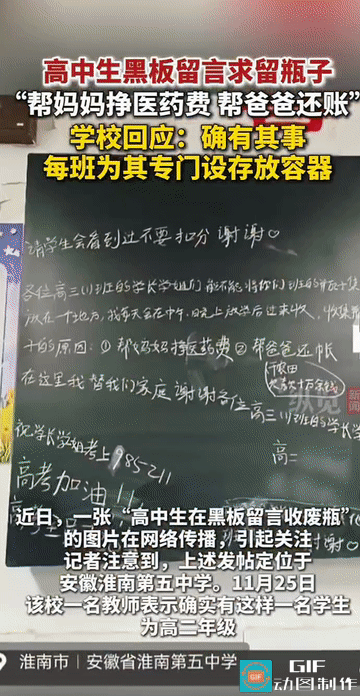 高中生黑板留言求留瓶子
“帮妈妈挣医药费 帮爸爸还账”
学校回应：确有其事
每班为其专门设存放容器
请学生会看到过不要扣分 谢谢♡
各位高三(1)班的学长学姐们 能不能将你们班的
放在一个地方，我每天会在中午、晚上放学后过来收
的原因：①帮妈妈挣医药费②帮爸爸还帐
在这里我替我们家庭谢谢各位高三(1)班的学长学
祝学长学姐考上985 211
高三
高考加油!!
近日，一张“高中生在黑板留言收废瓶”
的图片在网络传播，引起关注
记者注意到，上述发帖定位于
安徽淮南第五中学。11月25日
该校一名教师表示确实有这样一名学生
为高二年级
淮南市｜安徽省淮南第五中学
GIF
GIF
动图制作